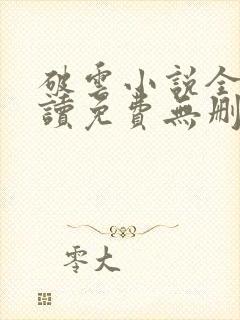 破雲小說全
讀免費無刪
零大